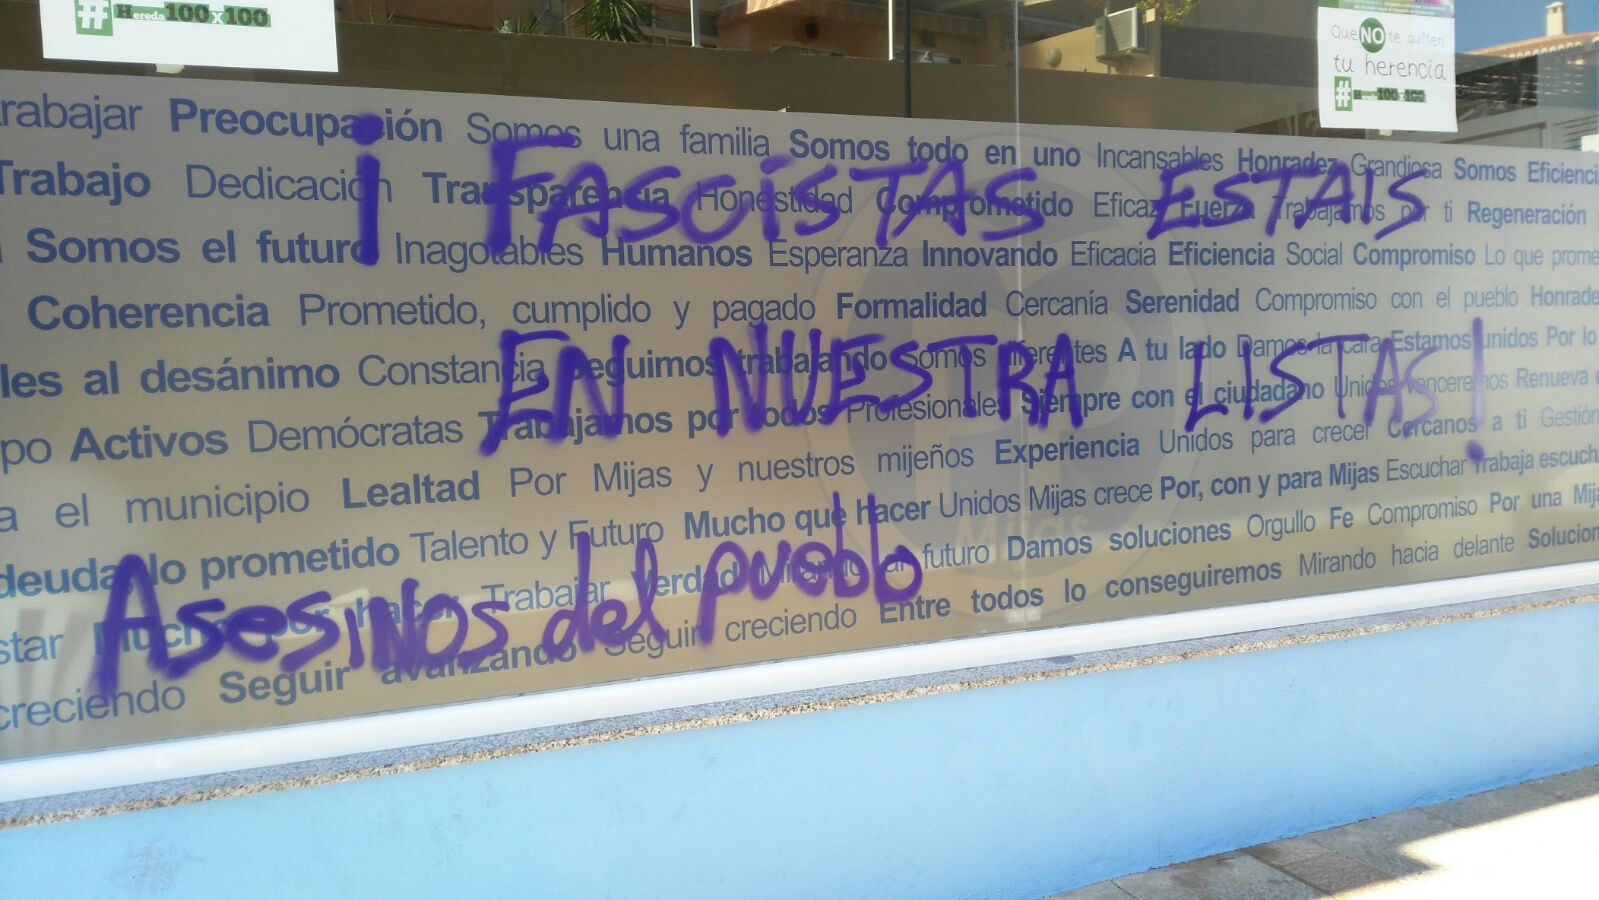 #Hereda100x100
Que NO te quiten
tu herencia
#Hereda100x100
trabajar Preocupación Somos una familia Somos todo en uno Incansables Honradez Grandiosa Somos Eficiencia
Trabajo Dedicación Transparencia Honestidad Comprometido Eficaz Fuerza Trabajamos por ti Regeneración
Somos el futuro Inagotables Humanos Esperanza Innovando Eficacia Eficiencia Social Compromiso Lo que prome
Coherencia Prometido, cumplido y pagado Formalidad Cercanía Serenidad Compromiso con el pueblo Honrade
les al desánimo Constancia Seguimos trabajando Somos diferentes A tu lado Damos la cara Estamos unidos Por lo
po Activos Demócratas Trabajamos por todos Profesionales Siempre con el ciudadano Unidos venceremos Renueva
a el municipio Lealtad Por Mijas y nuestros mijeños Experiencia Unidos para crecer Cercanos a ti Gestión
deuda lo prometido Talento y Futuro Mucho que hacer Unidos Mijas crece Por, con y para Mijas Escuchar Trabaja escucha
star Mucho por hacer Trabajar Verdad Mirando al futuro Damos soluciones Orgullo Fe Compromiso Por una Mija
creciendo Seguir avanzando Seguir creciendo Entre todos lo conseguiremos Mirando hacia delante Solucion
PP
Mijas
¡ FASCISTAS ESTAIS
EN NUESTRA LISTAS!
ASESINOS del pueblo